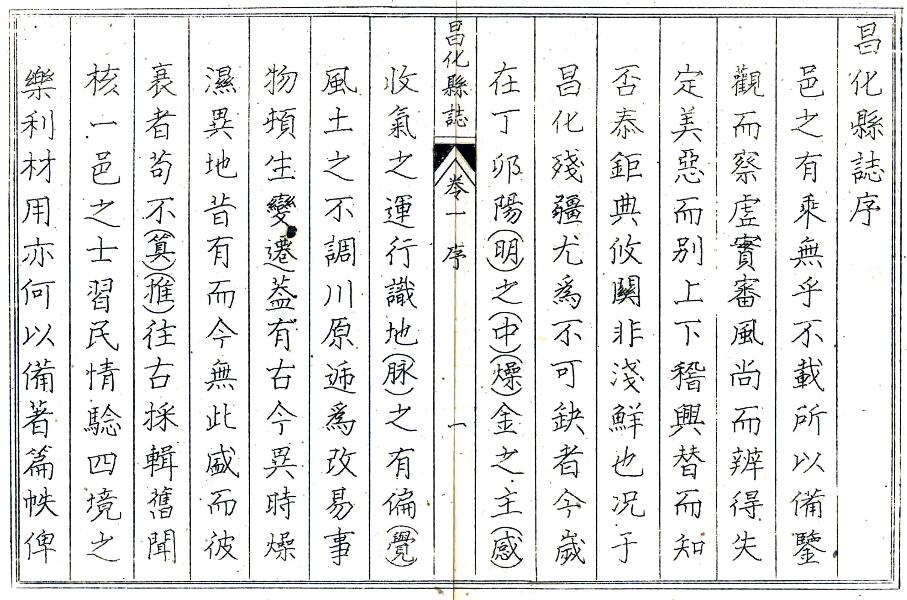 昌化縣誌序
邑之有乘無乎不載所以備鑒
觀而察虛實審風尚而辨得失
定美惡而别上下稽興替而知
否泰鉅典攸關非淺鮮也况于
昌化殘疆尤爲不可缺者今歲
在丁卯陽(明)之(中)(燥)金之主(感)
昌化縣誌 卷一 序 一
收氣之運行識地(脉)之有偏(覺)
風土之不調川原遞爲改易事
物頓生變遷葢有古今異時燥
濕異地昔有而今無此盛而彼
衰者苟不(算)(推)往古採輯舊聞
核一邑之士習民情騐四境之
樂利材用亦何以備著篇帙俾